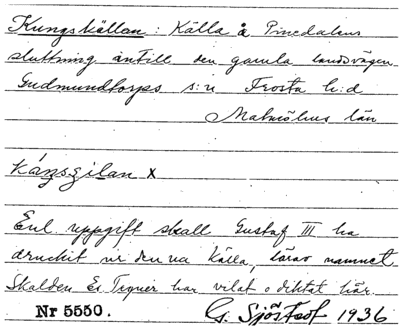 Kungskällan: Källa å Pinedalens
sluttning intill den gamla landsvägen
Gudmundtorps s:n Frosta h:d
Malmöhus län
x
Enl. uppgift skall Gustaf III ha
druckit ur denna källa, härav namnet.
Skalden Es. Tegnér har vilat o diktat här.
Nr 5550. G. Sjöstedt 1936